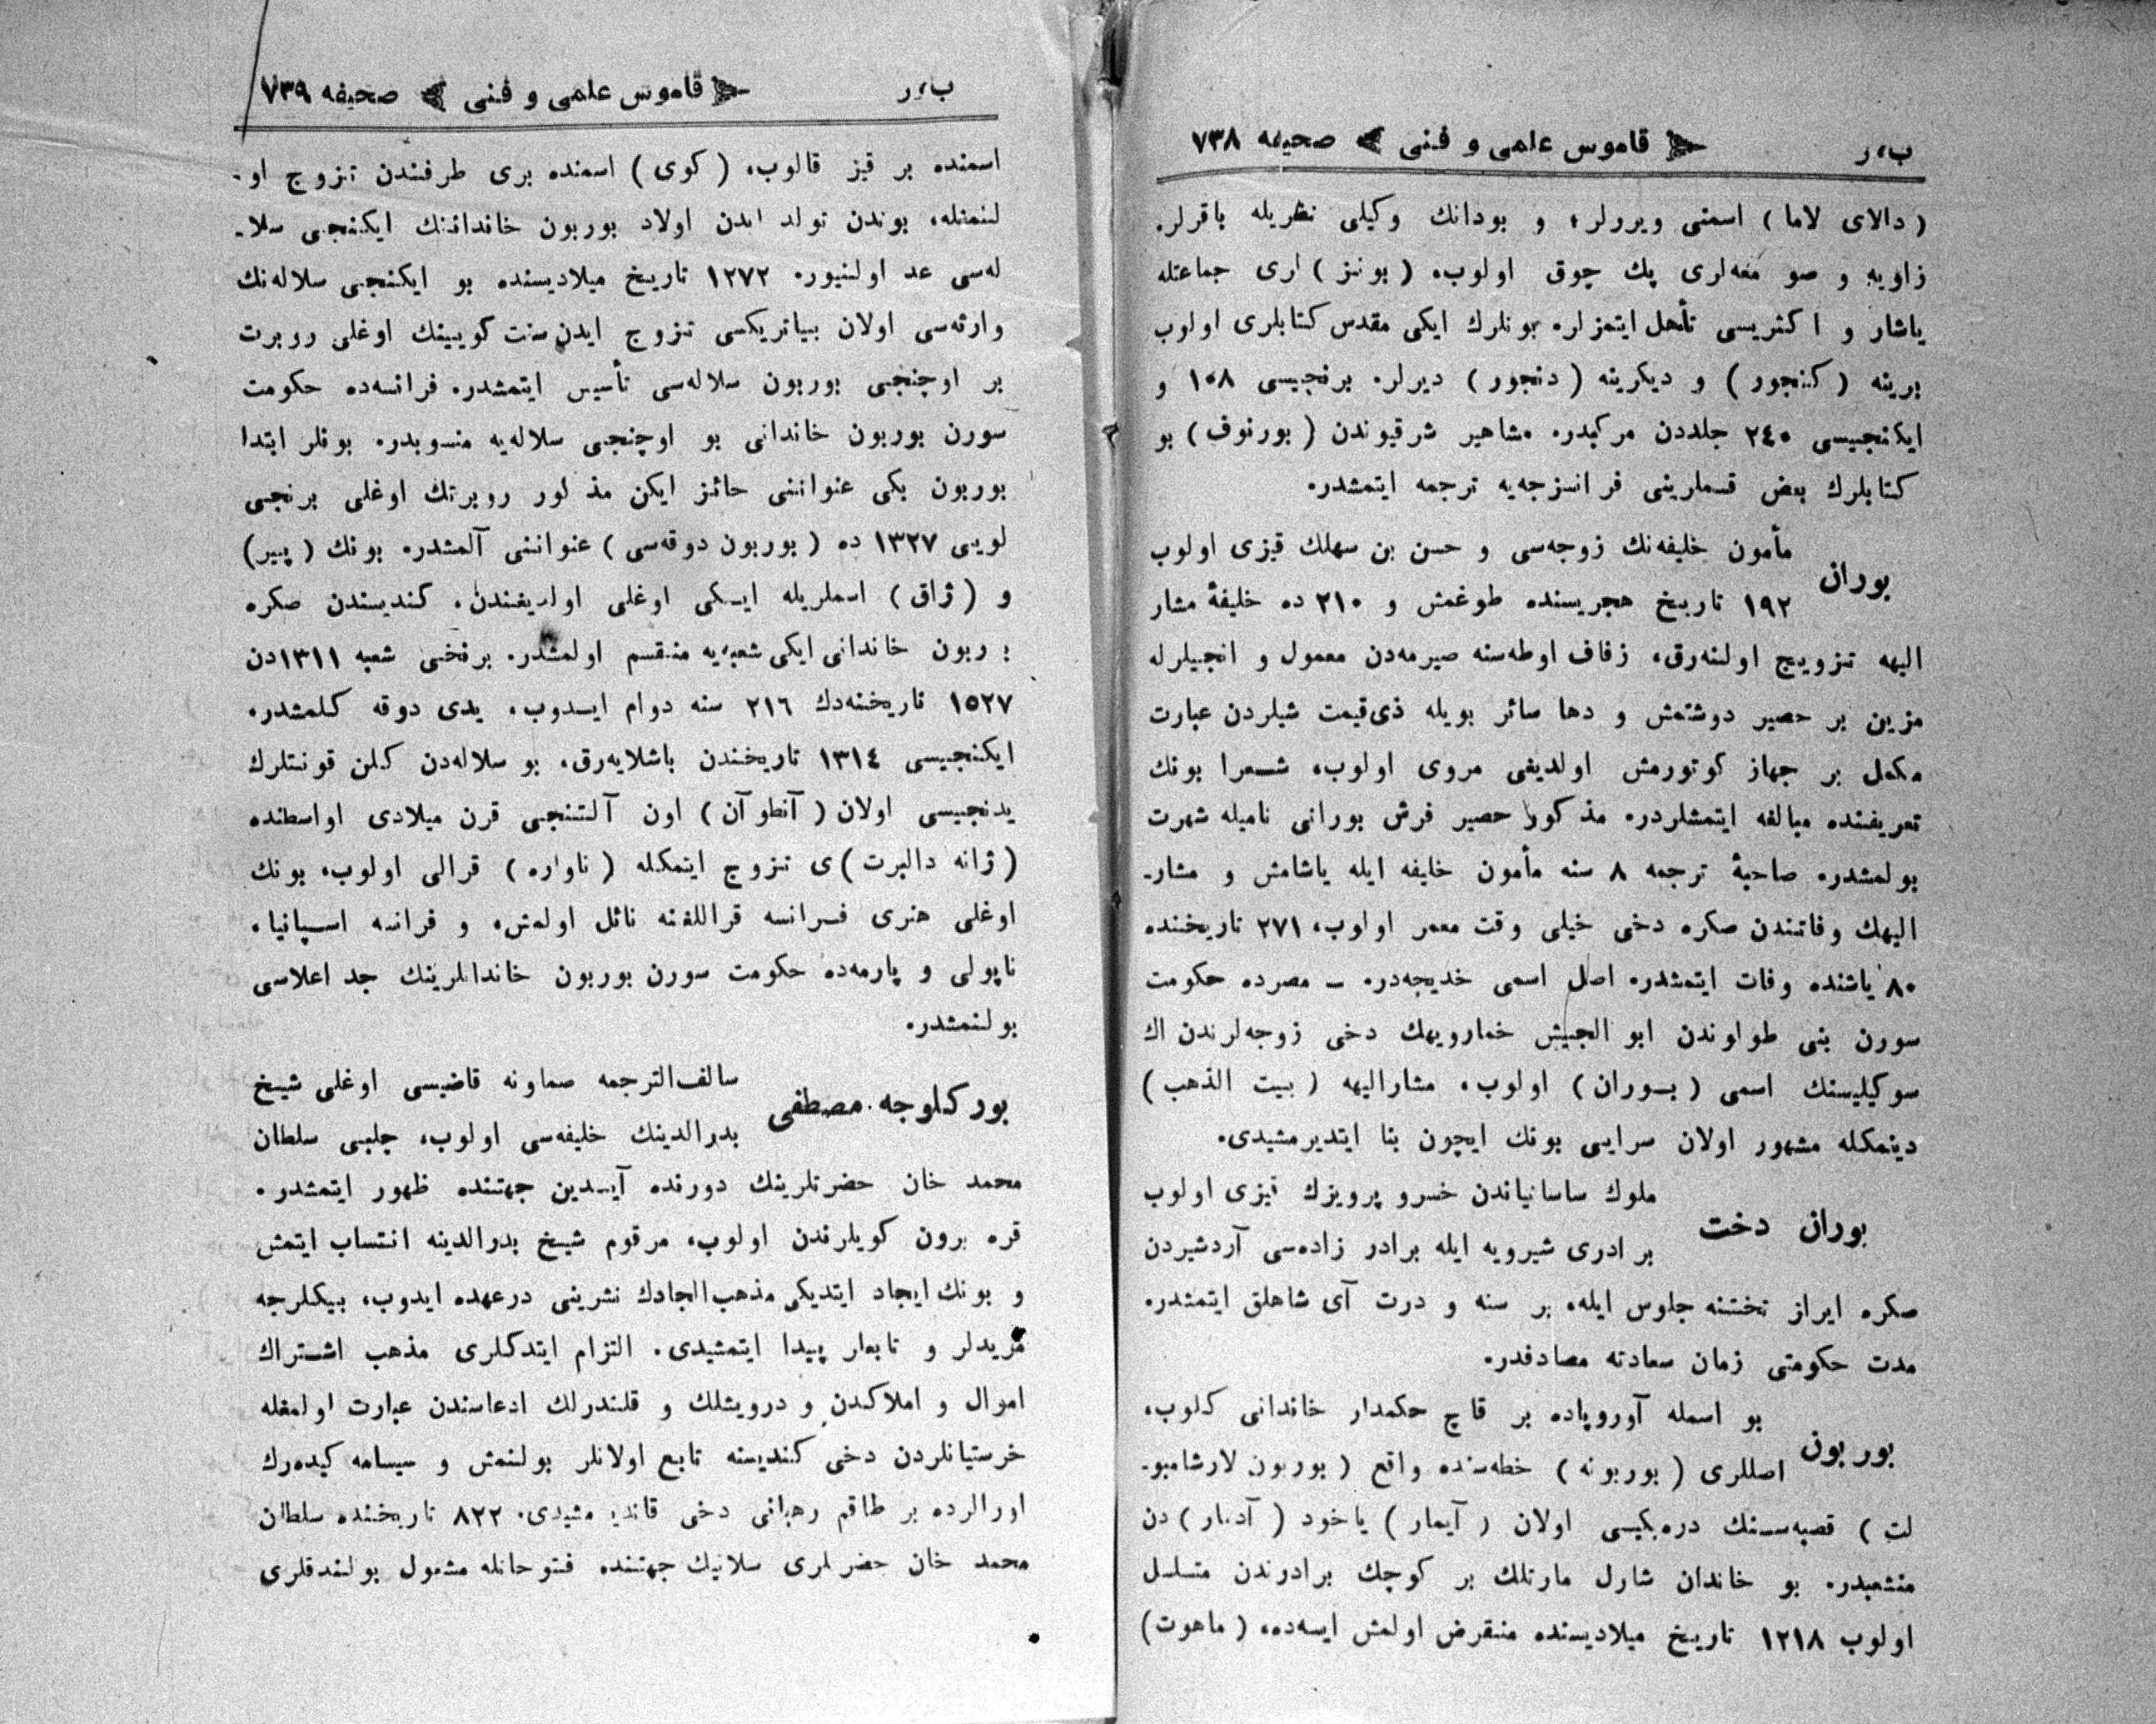 ب،ر قاموس علمی و فنی صحیفه ٧٣٨
(دالای لاما) اسمنی ویررلر؛ و بودانك وکیلی نظریله باقرلر.
زاویه و صومعه‌لری پك چوق اولوب، (بونز)لری جماعتله
یاشار و اکثریسی تأهل ایتمزلر. بونلرك ایکی مقدس کتابلری اولوب
برینه (کنجور) و دیکرینه (دنجور) دیرلر. برنجیسی ١٠٨ و
ایکنجیسی ٢٤٠ جلددن مرکبدر. مشاهیر شرقیوندن (بورنوف) بو
کتابلرك بعض قسملرینی فرانسزجه‌یه ترجمه ایتمشدر.
بوران
مأمون خلیفه‌نك زوجه‌سی و حسن بن سهلك قیزی اولوب
١٩٢ تاریخ هجریسنده طوغمش و ٢١٠ ده خلیفهٔ مشار
الیهه تزویج اولنه‌رق، زفاف اوطه‌سنه صیرمه‌دن معمول و انجیلرله
مزین بر حصیر دوشتمش و دها سائر بویله ذی‌قیمت شیلردن عبارت
مکمل بر جهاز کوتورمش اولدیغی مروی اولوب، شعرا بونك
تعریفنده مبالغه ایتمشلردر. مذکور حصیر فرش بورانی نامیله شهرت
بولمشدر. صاحبهٔ ترجمه ٨ سنه مأمون خلیفه ایله یاشامش و مشار-
الیهك وفاتندن صکره دخی خیلی وقت معمر اولوب، ٢٧١ تاریخنده
٨٠ یاشنده وفات ایتمشدر. اصل اسمی خدیجه‌در. – مصرده حکومت
سورن بنی طولوندن ابو الجیش خمارویهك دخی زوجه‌لرندن اك
سوکیلیسنك اسمی (بوران) اولوب، مشارالیهه (بیت الذهب)
دینمکله مشهور اولان سرایی بونك ایچون بنا ایتدیرمشیدی.
بوران دخت
ملوك ساسانیاندن خسرو پرویزك قیزی اولوب
برادری شیرویه ایله برادر زاده‌سی آردشیردن
صکره ایران تختنه جلوس ایله، بر سنه و درت آی شاهلق ایتمشدر.
مدت حکومتی زمان سعادته مصادفدر.
بوربون
بو اسمله آوروپاده بر قاچ حکمدار خاندانی کلوب،
اصللری (بوربونه) خطه‌سنده واقع (بوربون لارشامبو-
لت) قصبه‌سنك دره‌بکیسی اولان (آیمار) یاخود (آدمار)دن
منشعبدر. بو خاندان شارل مارتلك بر کوچك برادرندن متسلسل
اولوب ١٢١٨ تاریخ میلادیسنده منقرض اولمش ایسه‌ده، (ماهوت)
ب،ر قاموس علمی و فنی صحیفه ٧٣٩
اسمنده بر قیز قالوب، (کوی) اسمنده بری طرفندن تزوج او-
لنمغله، بوندن تولد ایدن اولاد بوربون خاندانتك ایکنجی سلا-
له‌سی عد اولنیور. ١٢٧٢ تاریخ میلادیسنده بو ایکنجی سلاله‌نك
وارثه‌سی اولان بیاتریکسی تزوج ایدن سنت کویینك اوغلی روبرت
بر اوچنجی بوربون سلاله‌سی تأسیس ایتمشدر. فرانسه‌ده حکومت
سورن بوربون خاندانی بو اوچنجی سلاله‌یه منسوبدر. بونلر ابتدا
بوربون بکی عنواننی حائز ایکن مذکور روبرتك اوغلی برنجی
لویی ١٣٢٧ ده (بوربون دوقه‌سی) عنواننی آلمشدر. بونك (پییر)
و (ژاق) اسملریله ایکی اوغلی اولدیغندن، کندیسندن صکره
بوربون خاندانی ایکی شعبه‌یه منقسم اولمشدر. برنجی شعبه ١٣١١دن
١٥٢٧ تاریخنه‌دك ٢١٦ سنه دوام ایدوب، یدی دوقه کلمشدر.
ایکنجیسی ١٣١٤ تاریخندن باشلایه‌رق، بو سلاله‌دن کلن قونتلرك
یدنجیسی اولان (آنطوآن) اون آلتنجی قرن میلادی اواسطنده
(ژانه دالبرت)ی تزوج ایتمکله (ناواره) قرالی اولوب، بونك
اوغلی هنری فرانسه قراللغنه نائل اولمش، و فرانسه اسپانیا،
ناپولی و پارمه‌ده حکومت سورن بوربون خاندانلرینك جد اعلاسی
بولنمشدر.
بورکلوجه مصطفی
سالف‌الترجمه صماونه قاضیسی اوغلی شیخ
بدرالدینك خلیفه‌سی اولوب، چلبی سلطان
محمد خان حضرتلرینك دورنده آیدین جهتنده ظهور ایتمشدر.
قره برون کویلرندن اولوب، مرقوم شیخ بدرالدینه انتساب ایتمش
و بونك ایجاد ایتدیکی مذهب‌الحادك نشرینی درعهده ایدوب، بیکلرجه
مریدلر و تابعلر پیدا ایتمشیدی. التزام ایتدکلری مذهب اشتراك
اموال و املاکدن و درویشلك و قلندرلك ادعاسندن عبارت اولمغله
خرستیانلردن دخی کندیسنه تابع اولانلر بولنمش و سیسامه کیده‌رك
اورالرده بر طاقم رهبانی دخی قاندیرمشیدی. ٨٢٢ تاریخنده سلطان
محمد خان حضرتلری سلانیك جهتنده فتوحاتله مشغول بولندقلری